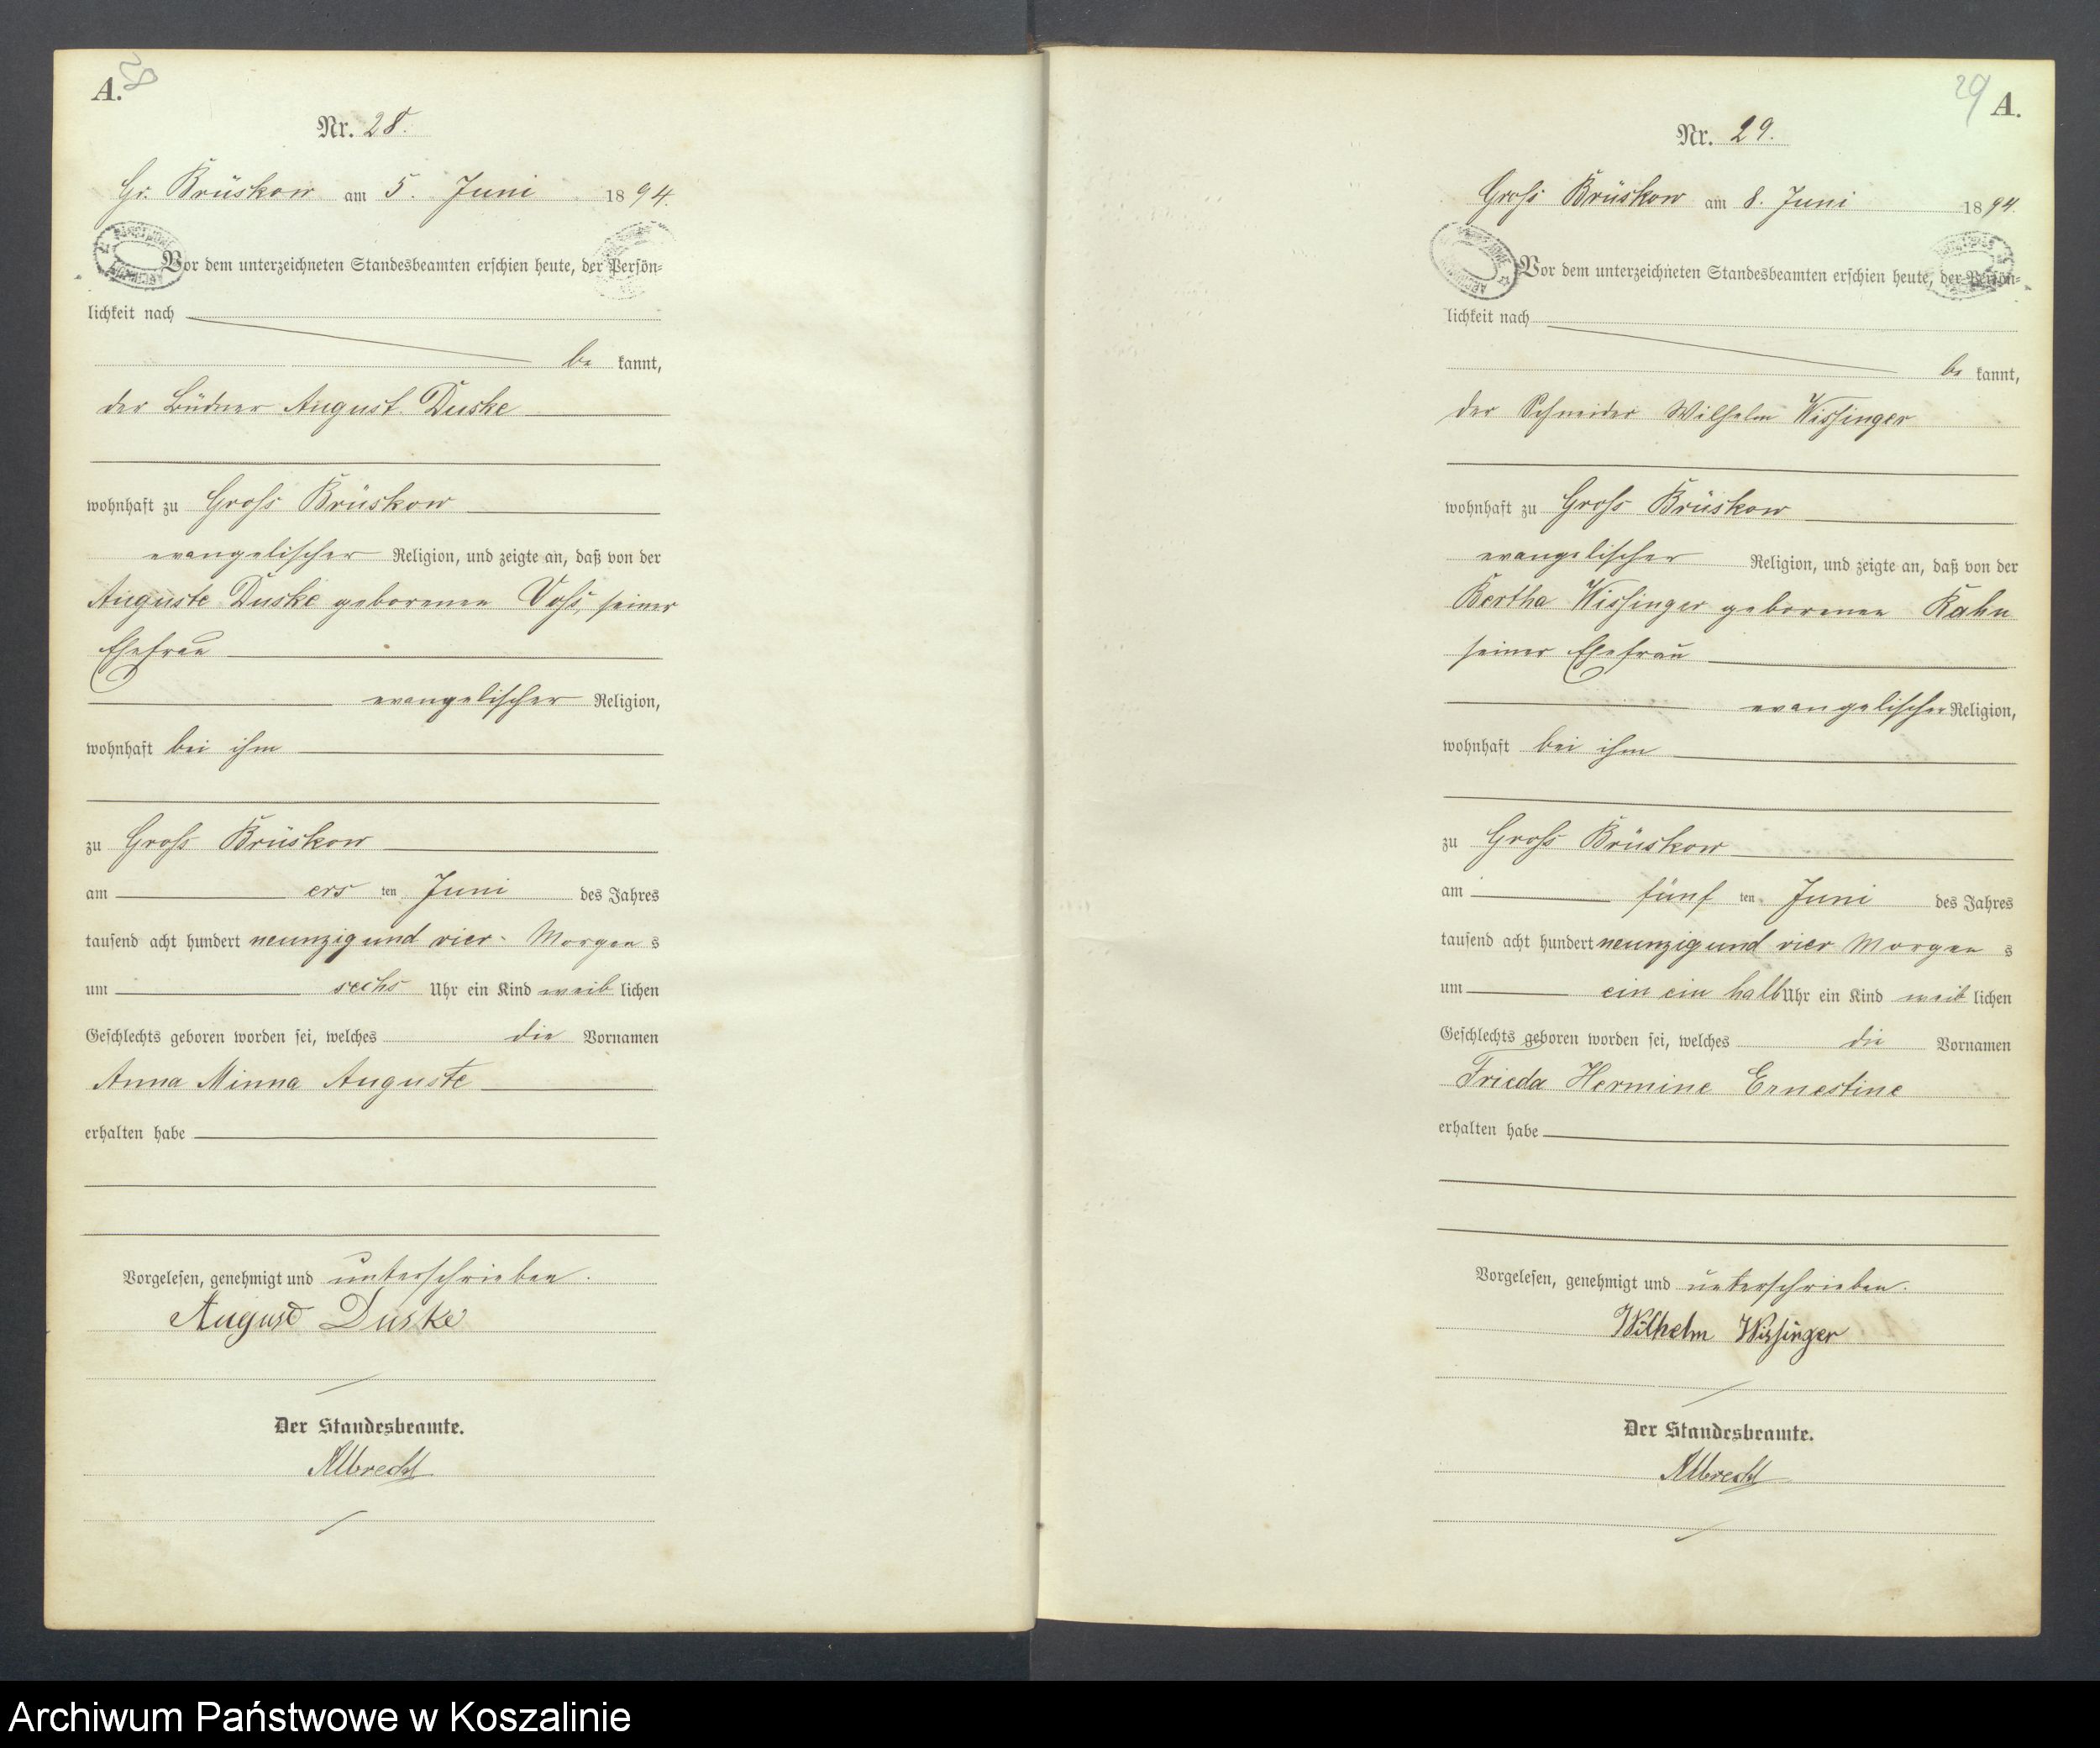 A.
28
Nr. 28.
Gr. Brüskow am 5. Juni 1894.
Vor dem unterzeichneten Standesbeamten erschien heute, der Persön-
lichkeit nach
be kannt,
der Büdner August Duske
wohnhaft zu Groß Brüskow
evangelischer Religion, und zeigte an, daß von der
Auguste Duske geborenen Voß, seiner
Ehefrau
evangelischer Religion,
wohnhaft bei ihm
zu Groß Brüskow
am ers ten Juni des Jahres
tausend acht hundert neunzig und vier Morgens
um sechs Uhr ein Kind weiblichen
Geschlechts geboren worden sei, welches die Vornamen
Anna Minna Auguste
erhalten habe
Vorgelesen, genehmigt und unterschrieben.
August Duske
Der Standesbeamte.
Albrecht
29
A.
Nr. 29.
Groß Brüskow am 8. Juni 1894.
Vor dem unterzeichneten Standesbeamten erschien heute, der Persön-
lichkeit nach
be kannt,
der Schneider Wilhelm Wissinger
wohnhaft zu Groß Brüskow
evangelischer Religion, und zeigte an, daß von der
Bertha Wissinger geborenen Kahn
seiner Ehefrau
evangelischer Religion,
wohnhaft bei ihm
zu Groß Brüskow
am fünf ten Juni des Jahres
tausend acht hundert neunzig und vier Morgens
um ein ein halb Uhr ein Kind weiblichen
Geschlechts geboren worden sei, welches die Vornamen
Frieda Hermine Ernestine
erhalten habe
Vorgelesen, genehmigt und unterschrieben.
Wilhelm Wissinger
Der Standesbeamte.
Albrecht
Archiwum Państwowe w Koszalinie